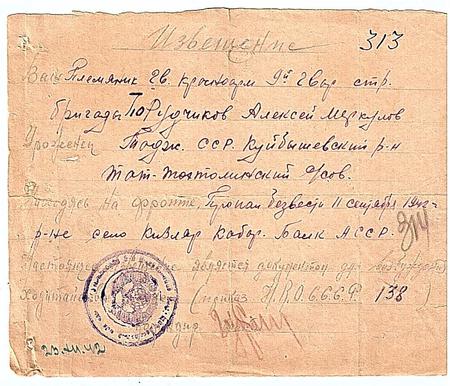 Извещение 313
Ваш Племяник Гв. красноарм 9й Гвар стр.
бригады Порудчиков Алексей Меркулов
Уроженец Тадж. ССР. Куйбышевский р-н
Находясь на фронте, Пропал безвести 11 сентября 1942 г
р-не село кизляр Кабар. Балк АССР.
Настоящее является документом для
Ходатайства (приказ Н.К.О.С.С.С.Р. 138)
23.XI.42